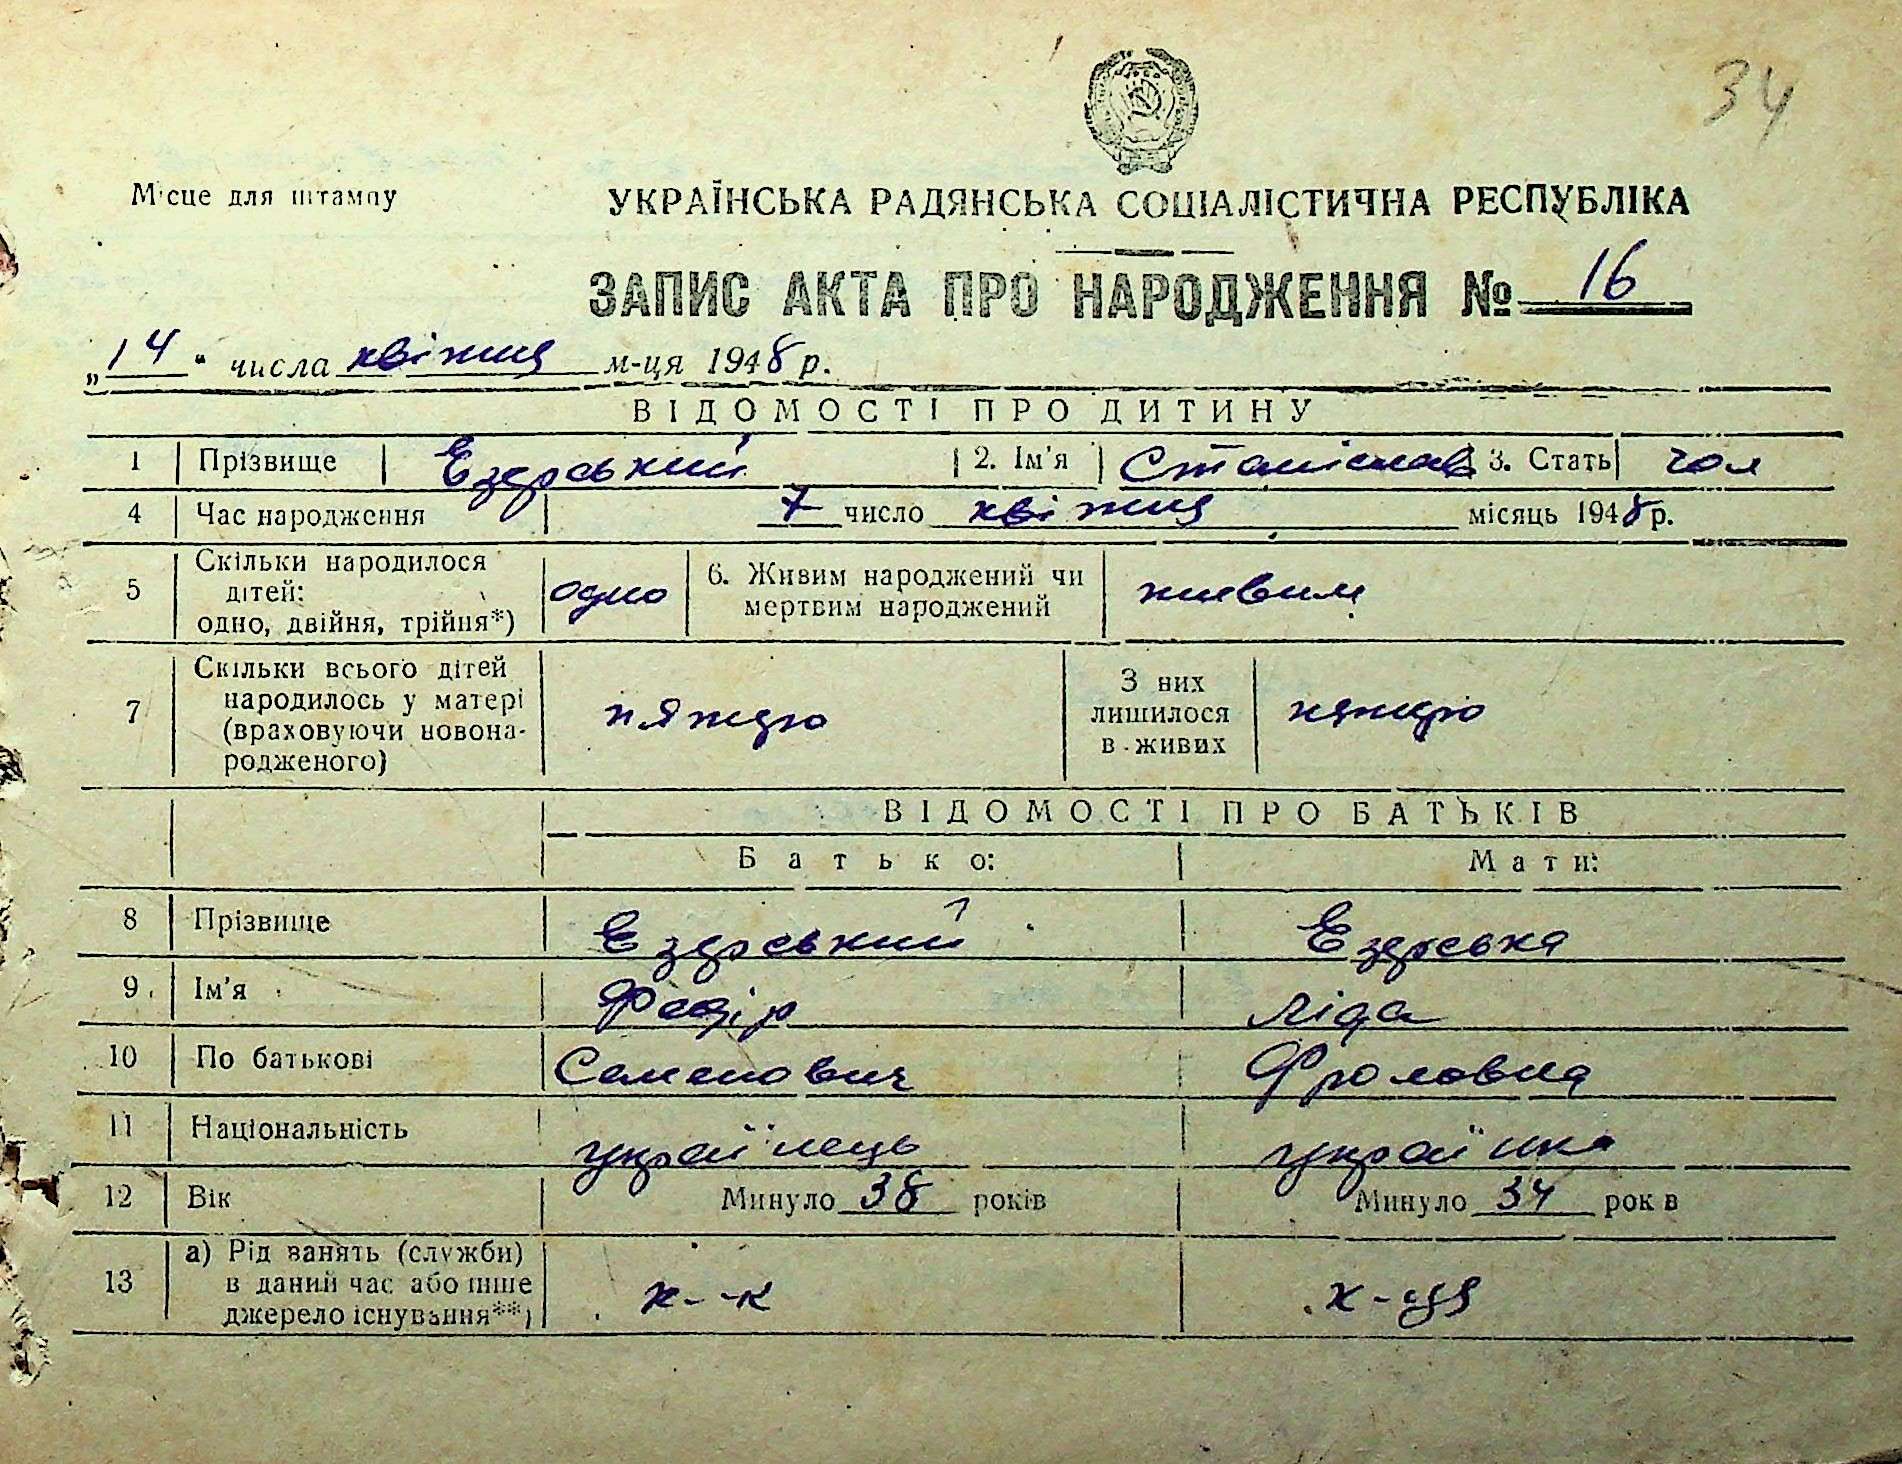 34
Місце для штампу
УКРАЇНСЬКА РАДЯНСЬКА СОЦІАЛІСТИЧНА РЕСПУБЛІКА
ЗАПИС АКТА ПРО НАРОДЖЕННЯ № 16
„14“ числа квітня м-ця 1948 р.
ВІДОМОСТІ ПРО ДИТИНУ
1 Прізвище Езерський 2. Ім'я Станіслав 3. Стать чол
4 Час народження 7 число квітня місяць 1948 р.
5 Скільки народилося дітей: одно, двійня, трійня*) одно 6. Живим народжений чи мертвим народжений живим
7 Скільки всього дітей народилось у матері (враховуючи новонародженого) пятеро З них лишилося в живих пятеро
ВІДОМОСТІ ПРО БАТЬКІВ
Батько: Мати:
8 Прізвище Езерський Езерська
9 Ім'я Федір Ліда
10 По батькові Семенович Фроловна
11 Національність українець українка
12 Вік Минуло 38 років Минуло 34 років
13 а) Рід занять (служби) в даний час або інше джерело існування**) к--к к-ця